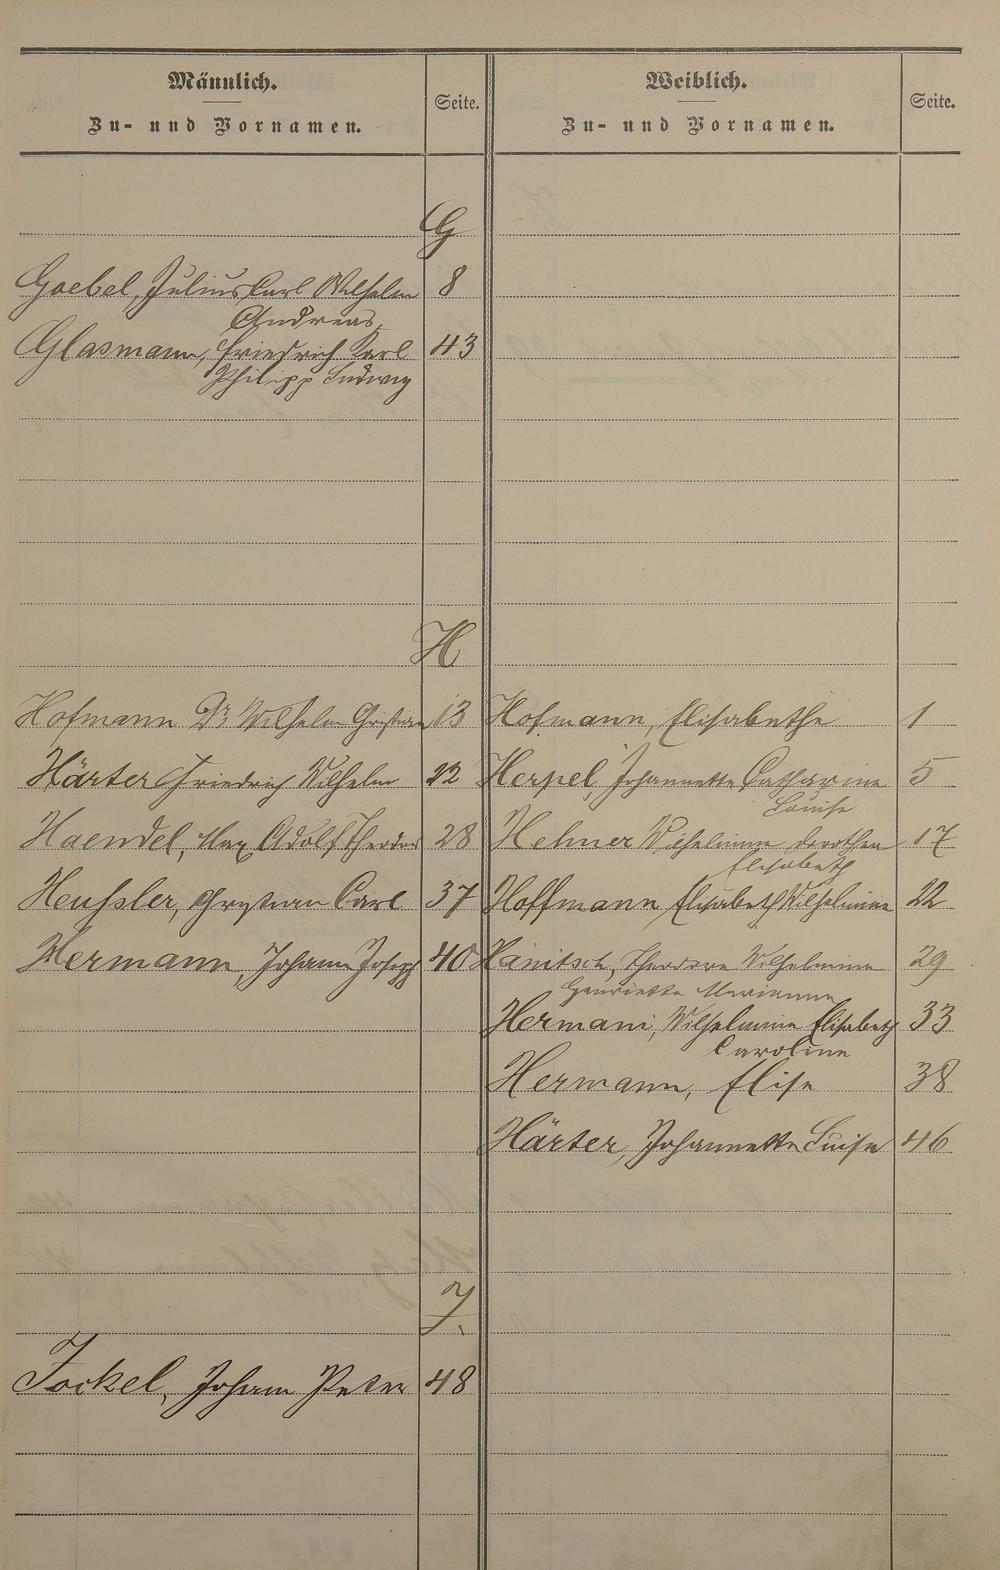 Männlich.
Zu- und Vornamen.
Seite.
Weiblich.
Zu- und Vornamen.
Seite.
G
Goebel, Julius Carl Wilhelm 8
Andreas
Glasmann, Friedrich Karl 43
Philipp Ludwig
H
Hofmann Dr. Wilhelm Christian 13 Hofmann, Elisabethe 1
Härter Friedrich Wilhelm 22 Herpel, Johannette Catharine 5
Louise
Haendel, Max Adolf Theodor 28 Hehner Wilhelmine Dorothea 17
Elisabeth
Heußler, Christian Carl 37 Hoffmann Elisabeth Wilhelmine 22
Hermann, Johann Joseph 40 Hänitsch, Theodore Wilhelmine 29
Henriette Marianne
Hermani, Wilhelmine Elisabeth 33
Caroline
Hermann, Elise 38
Härter, Johannette Luise 46
J.
Jockel, Johann Peter 48